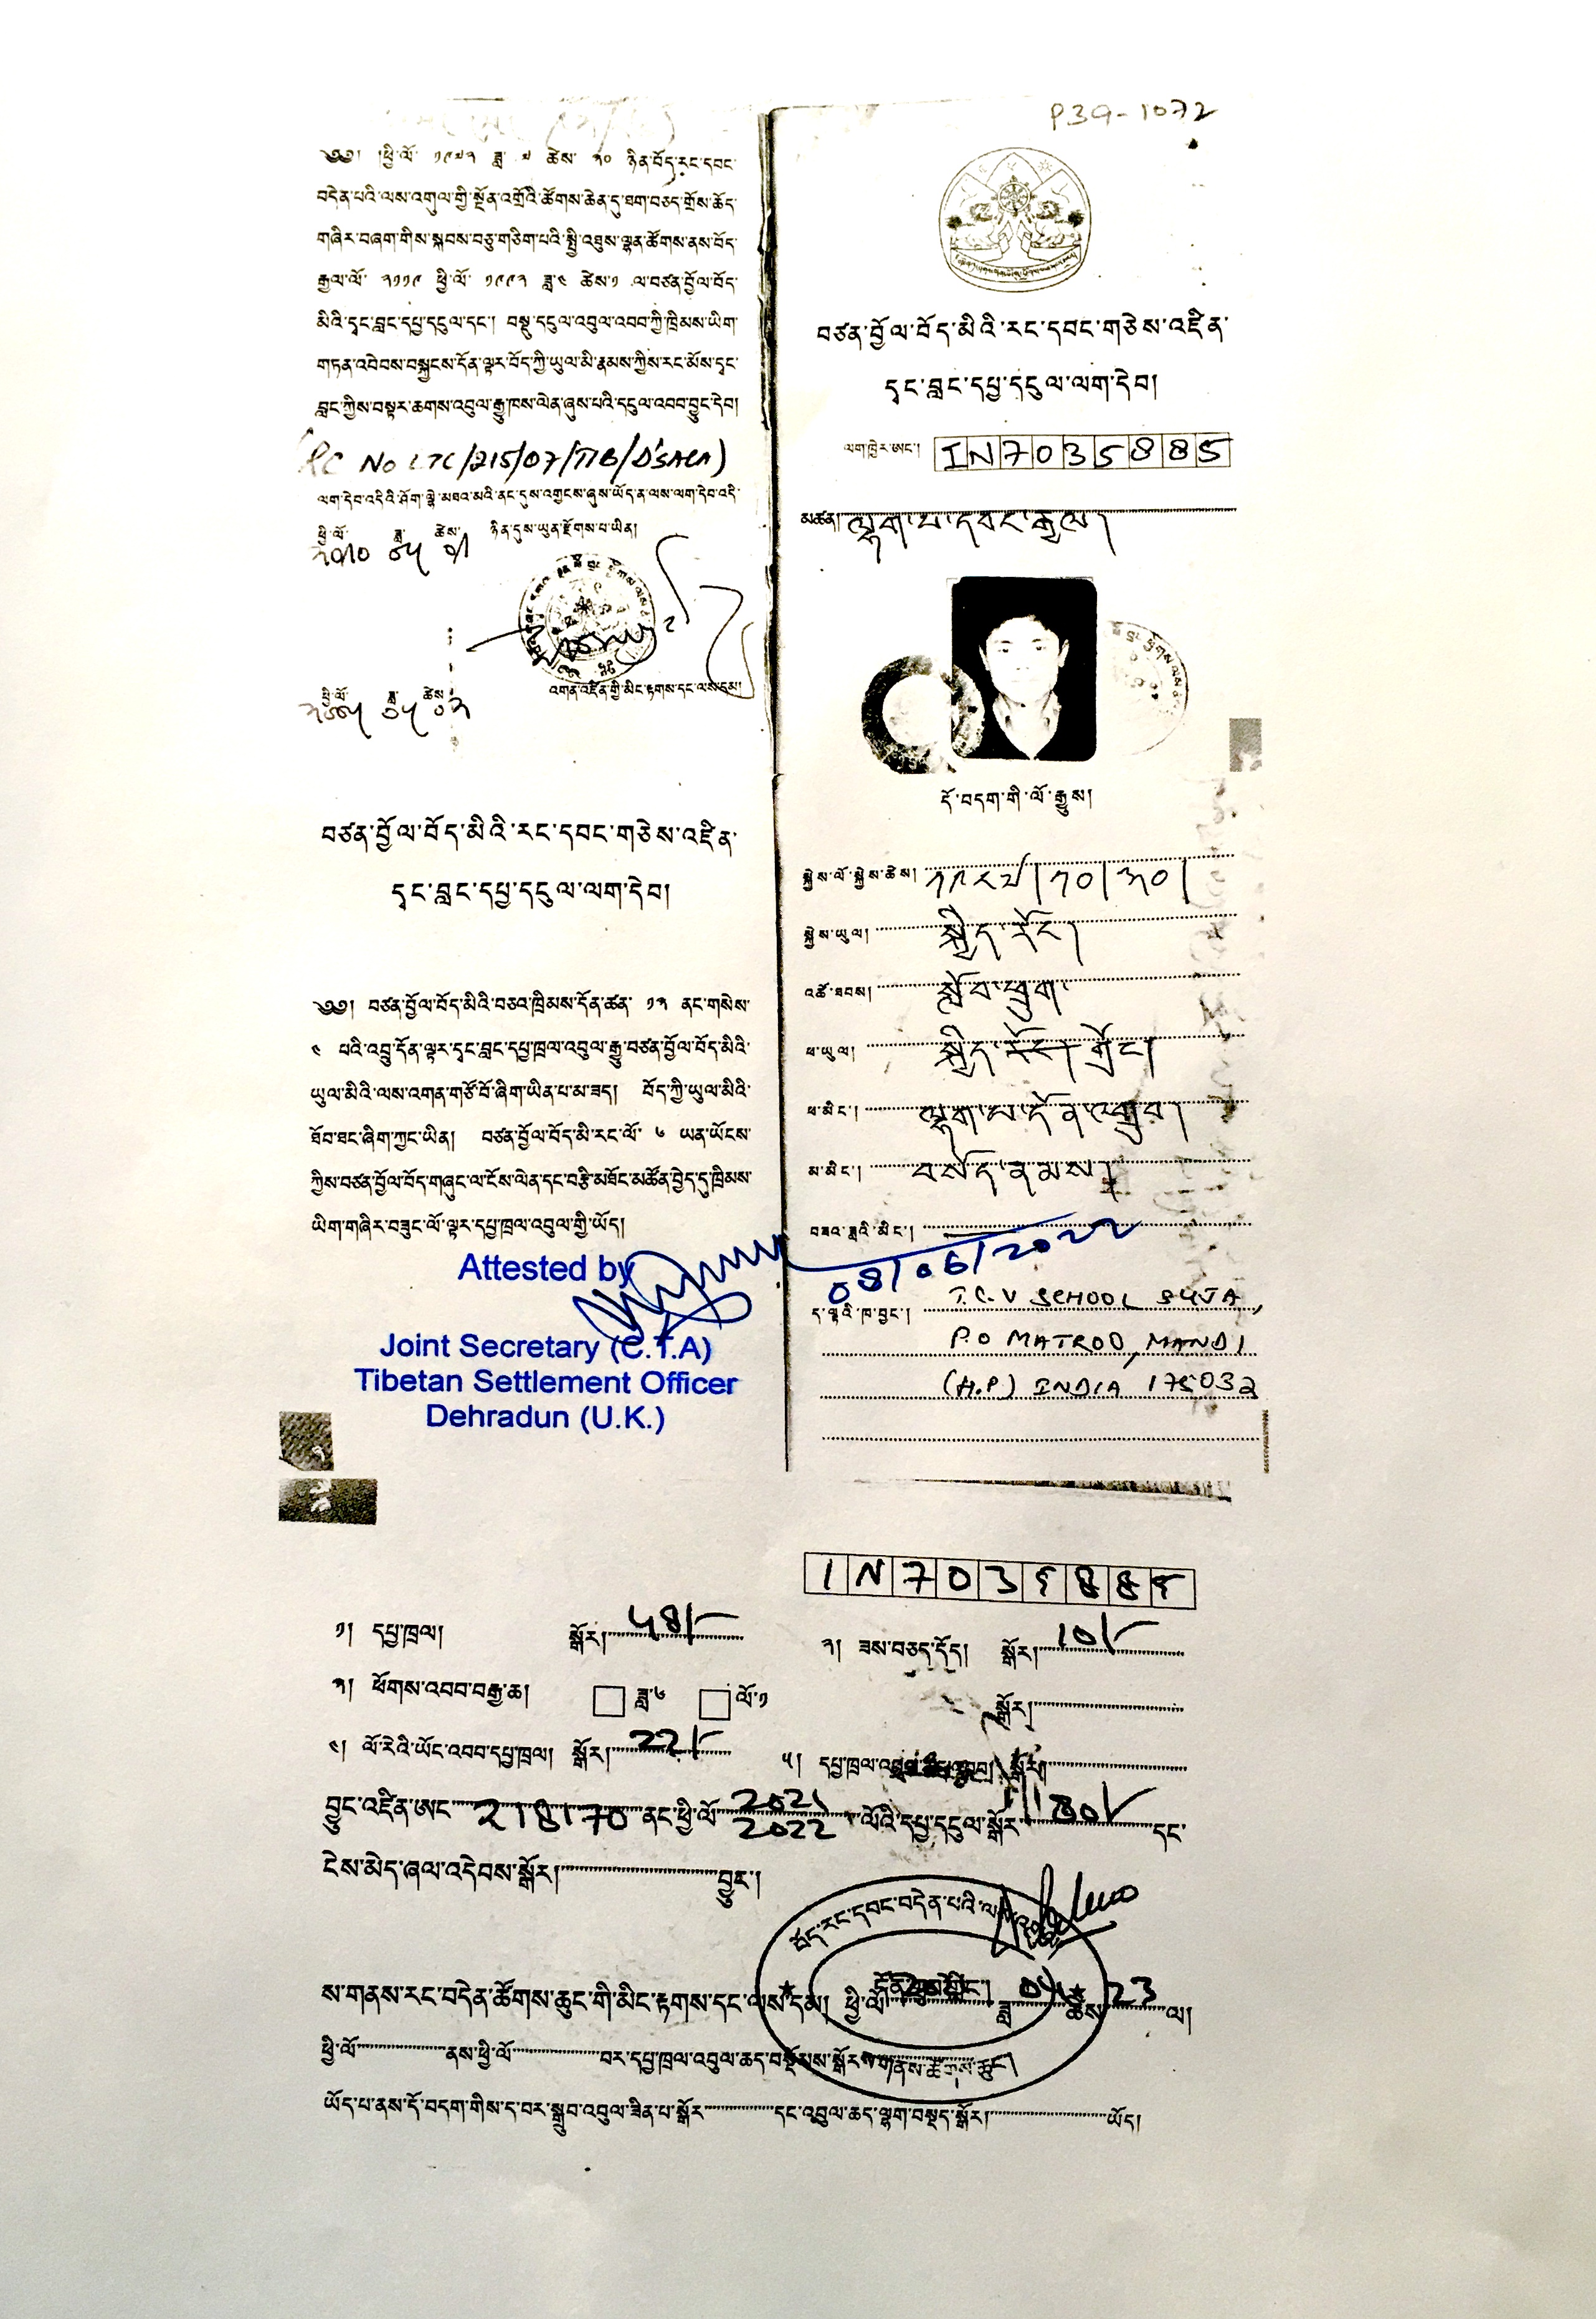 P39-1072
༄༅། །ཕྱི་ལོ་ ༡༩༧༢ ཟླ་ ༧ ཚེས་ ༣༠ ཉིན་བོད་རང་དབང་
བདེན་པའི་ལས་འགུལ་གྱི་སྔོན་འགྲོའི་ཚོགས་ཆེན་དུ་ཐག་བཅད་གྲོས་ཆོད་
གཞིར་བཞག་གིས་སྐབས་བཅུ་གཅིག་པའི་སྤྱི་འཐུས་ལྷན་ཚོགས་ནས་བོད་
རྒྱལ་ལོ་ ༢༡༡༩ ཕྱི་ལོ་ ༡༩༩༢ ཟླ་༤ ཚེས་༡ ལ་བཙན་བྱོལ་བོད་
མིའི་དྭང་བླང་དཔྱ་དངུལ་དང་། བསྡུ་དངུལ་འབུལ་འབབ་ཀྱི་ཁྲིམས་ཡིག་
གཏན་འབེབས་བསྐྱངས་དོན་ལྟར་བོད་ཀྱི་ཡུལ་མི་རྣམས་ཀྱིས་རང་མོས་དྭང་
བླང་ཀྱིས་བསྟར་ཆགས་འབུལ་རྒྱུ་ཁས་ལེན་ཞུས་པའི་དངུལ་འབབ་བྱུང་དེབ།
RC No LTC/215/07/TIB/D'SALA)
ལག་དེབ་འདིའི་ཤོག་ལྷེ་མཐའ་མའི་ནང་དུས་འགྱངས་ཞུས་ཡོད་ན་ལས་ལག་དེབ་འདི་
ཕྱི་ལོ་ ཟླ་ ཚེས་ ཉིན་དུས་ཡུན་རྫོགས་པ་ཡིན།
༢༠༡༠ ༠༥ ༠༡
འགན་འཛིན་གྱི་མིང་རྟགས་དང་ལས་དམ།
ཕྱི་ལོ་ ཟླ་ ཚེས་
༢༠༠༥ ༠༥ ༠༢
བཙན་བྱོལ་བོད་མིའི་རང་དབང་གཅེས་འཛིན་
དྭང་བླང་དཔྱ་དངུལ་ལག་དེབ།
༄༅། བཙན་བྱོལ་བོད་མིའི་བཅའ་ཁྲིམས་དོན་ཚན་ ༡༣ ནང་གསེས་
༤ པའི་འབྲུ་དོན་ལྟར་དྭང་བླང་དཔྱ་ཁྲལ་འབུལ་རྒྱུ་བཙན་བྱོལ་བོད་མིའི་
ཡུལ་མིའི་ལས་འགན་གཙོ་བོ་ཞིག་ཡིན་པ་མ་ཟད། བོད་ཀྱི་ཡུལ་མིའི་
ཐོབ་ཐང་ཞིག་ཀྱང་ཡིན། བཙན་བྱོལ་བོད་མི་རང་ལོ་ ༦ ཡན་ཡོངས་
ཀྱིས་བཙན་བྱོལ་བོད་གཞུང་ལ་ངོས་ལེན་དང་བརྩི་མཐོང་མཚོན་བྱེད་དུ་ཁྲིམས་
ཡིག་གཞིར་བཟུང་ལོ་ལྟར་དཔྱ་ཁྲལ་འབུལ་གྱི་ཡོད།
Attested by
Joint Secretary (C.T.A)
Tibetan Settlement Officer
Dehradun (U.K.)
བཙན་བྱོལ་བོད་མིའི་རང་དབང་གཅེས་འཛིན་
དྭང་བླང་དཔྱ་དངུལ་ལག་དེབ།
ལག་ཁྱེར་ཨང་། IN7035885
མཚན། ལྷག་པ་དབང་རྒྱལ།
ངོ་བདག་གི་ལོ་རྒྱུས།
སྐྱེས་ལོ་སྐྱེས་ཚེས། ༡༩༨༧།༡༠།༣༠།
སྐྱེས་ཡུལ། སྐྱིད་རོང་།
འཚོ་ཐབས། སློབ་ཕྲུག
ཕ་ཡུལ། སྐྱིད་རོང་གྲོང་།
ཕ་མིང་། ལྷག་པ་དོན་གྲུབ།
མ་མིང་། བསོད་ནམས།
བཟའ་ཟླའི་མིང་།
08/06/2022
ད་ལྟའི་ཁ་བྱང་། T.C.V SCHOOL SUJA,
P.O MATROO, MANDI
(H.P) INDIA 175032
IN7035885
༡། དཔྱ་ཁྲལ། སྒོར། 48/-
༢། ཟས་བཅད་དོད། སྒོར། 10/-
༣། ཕོགས་འབབ་བརྒྱ་ཆ། ཟླ་༦ ལོ་༡ སྒོར།
༤། ལོ་རེའི་ཡོང་འབབ་དཔྱ་ཁྲལ། སྒོར། 22/-
༥། དཔྱ་ཁྲལ་ སྒོར།
བྱུང་འཛིན་ཨང་ 218170 ནང་ཕྱི་ལོ་ 2021 2022 ལོའི་དཔྱ་དངུལ་སྒོར་ 80/- དང་
ངེས་མེད་ཞལ་འདེབས་སྒོར། བྱུང་།
བོད་རང་དབང་བདེན་པའི་
ས་གནས་རང་བདེན་ཚོགས་ཆུང་གི་མིང་རྟགས་དང་ལས་དམ། ཕྱི་ལོ་ ཟླ་ ཚེས་ 23 ལ།
ཕྱི་ལོ་ ནས་ཕྱི་ལོ་ བར་དཔྱ་ཁྲལ་འབུལ་ཆད་བསྡོམས་སྒོར་
ཡོད་པ་ནས་ངོ་བདག་གིས་ད་བར་སྒྲུབ་འབུལ་ཟིན་པ་སྒོར་ དང་འབུལ་ཆད་ལྷག་བསྡད་སྒོར། ཡོད།